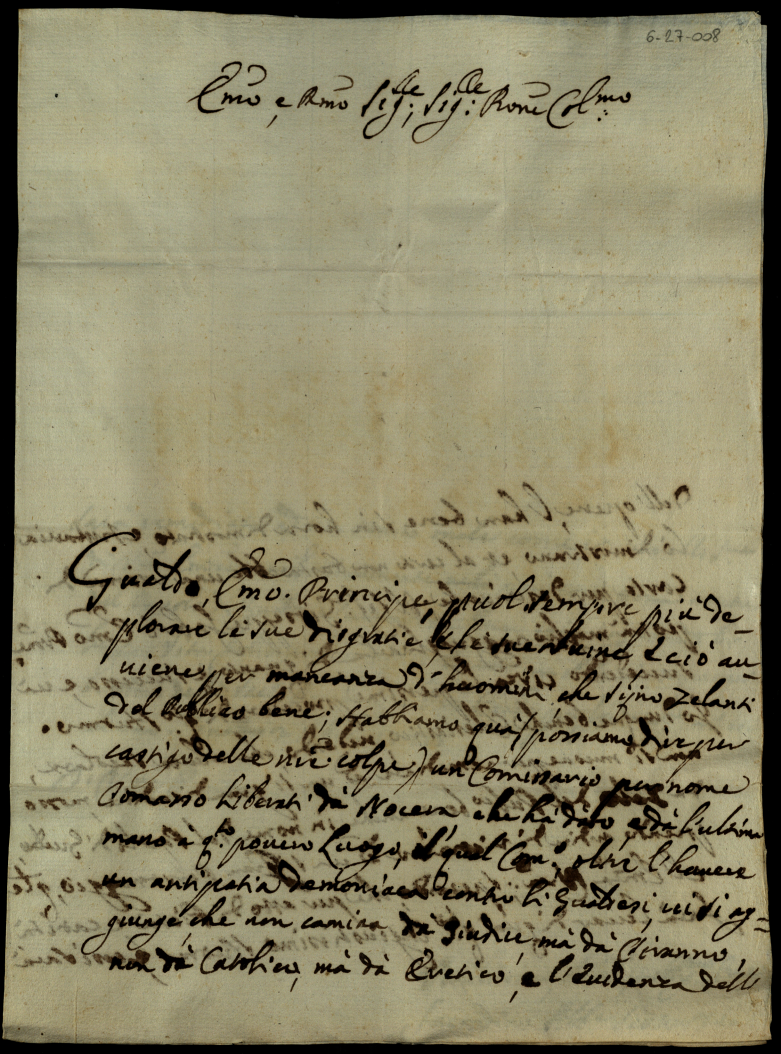 6-27-008
Emo e Rmo Sig:re, Sig:re Prone Colmo
Gualdo, Emo. Principe, puol sempre più de-
plorare le sue disgratie, e le sue ruine, e ciò au-
uiene per mancanza d'huomini che sijno zelanti
del Publico bene; Habbiamo quà (possiamo dire per
castigo delle nre colpe) un Comissario per nome
Tomasso Liberati dà Nocera che hà dato, e dà l'ultima
mano à qto pouero Luogo, il qual Com.o oltre l'hauere
un antipatia demoniaca contro li Gualdesi, ui si ag=
giunge, che non camina dà Giudice, mà dà Tiranno,
non dà Catolico, mà dà Eretico, e l'euidenza delle